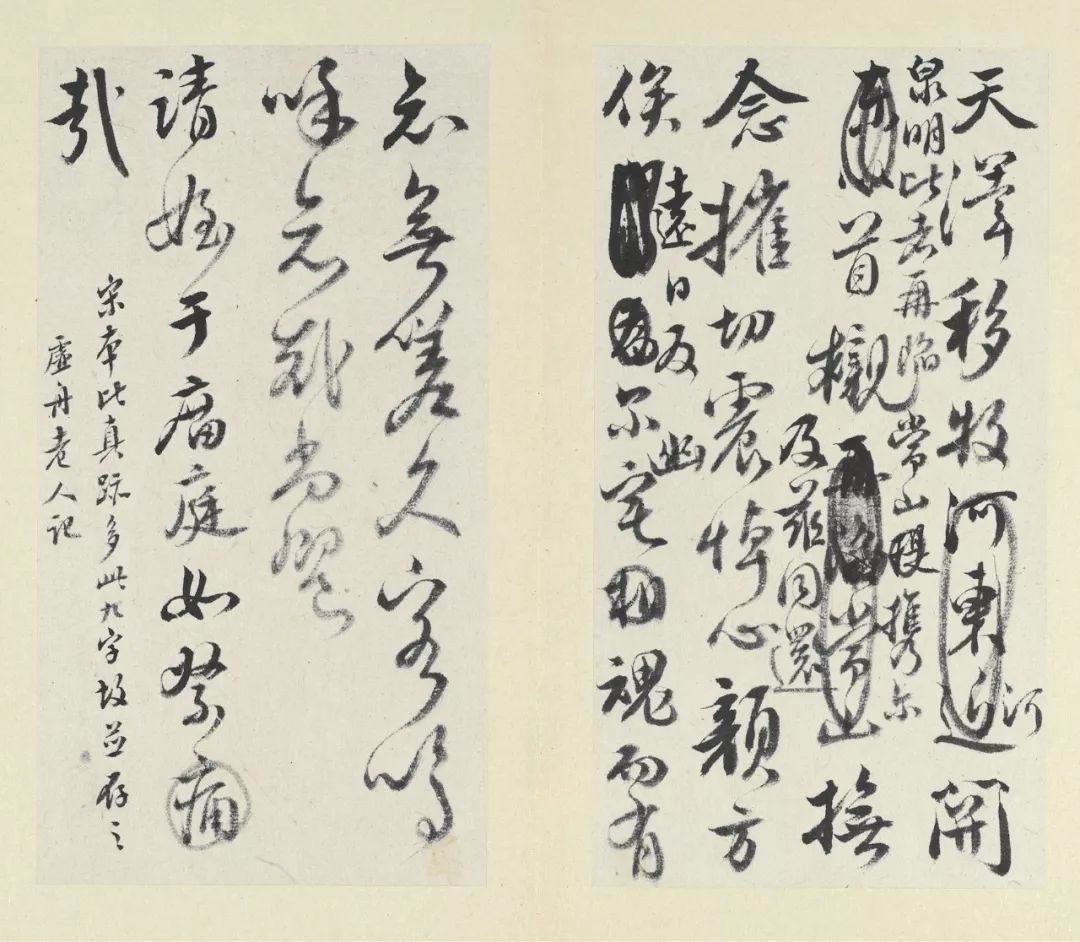 天澤移牧河東近河開
泉明比者再陷常山提攜爾
首櫬再陷常山撫
及茲同還
念摧切震悼心顏方
俟遠日及爾幽宅相魂而有
知無嗟久客嗚
呼哀哉尚饗
清姪于痛庭如祭痛
哉
宋本比真跡多此九字故並存之
虛舟老人記